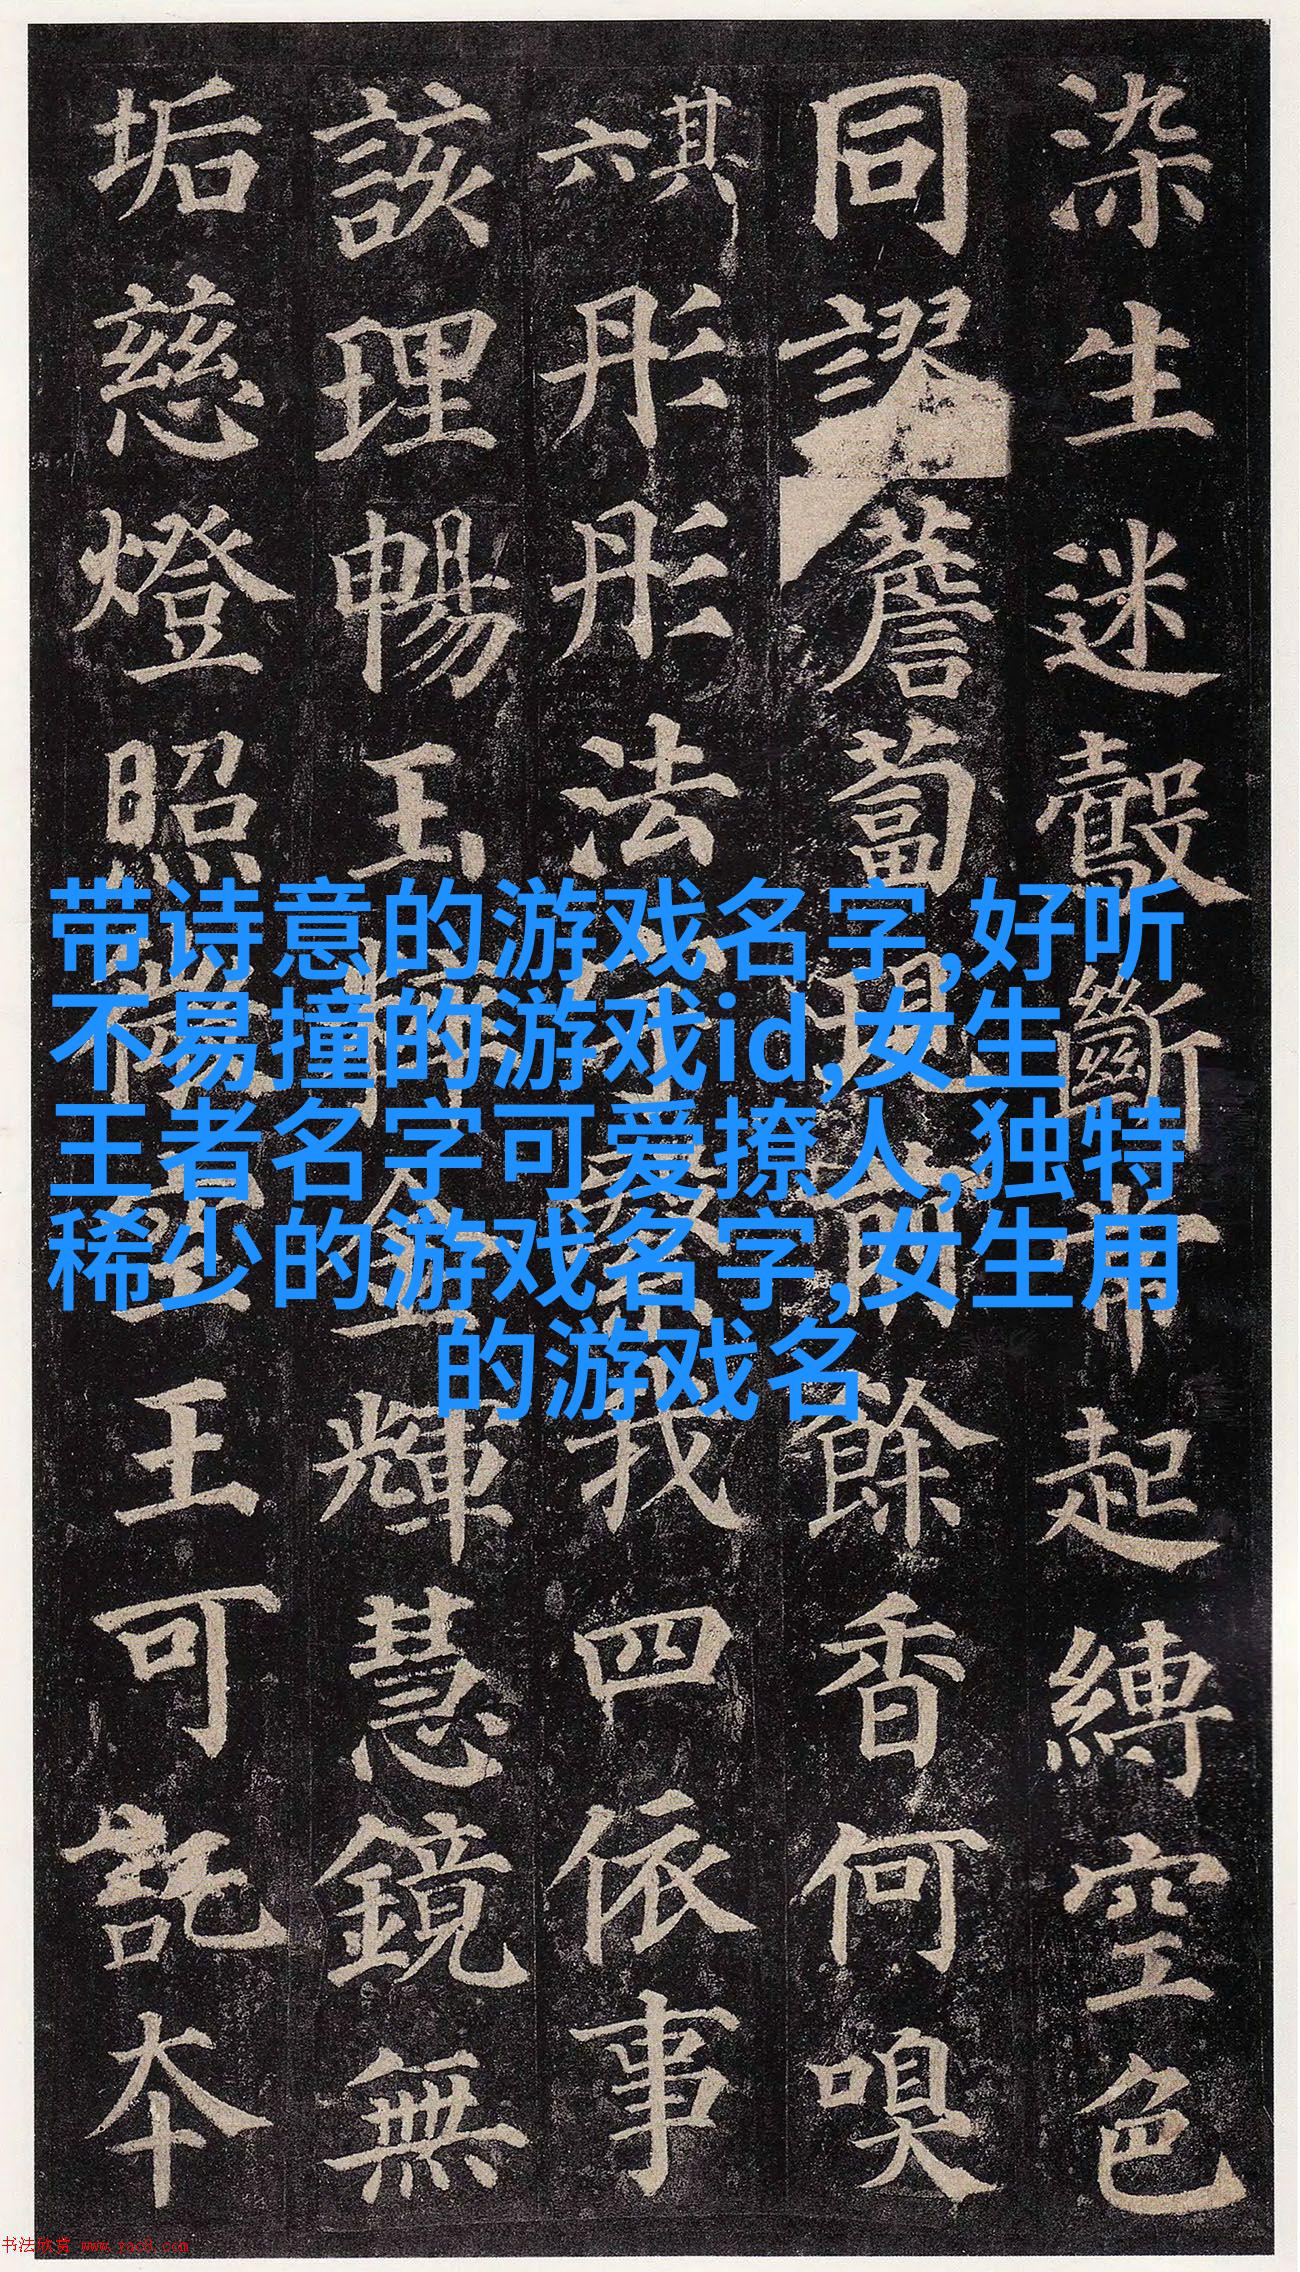 染生迷鷇斷常起縛空色
同謬薝蔔現前餘香何嗅
其六彤彤法宇繄我四依事
該理暢玉粹金輝慧鏡無
垢慈燈照微空王可託本
带诗意的游戏名字,好听
不易撞的游戏id,女生
王者名字可爱撩人,独特
稀少的游戏名字,女生用
的游戏名
书法欣赏 www.yac8.com